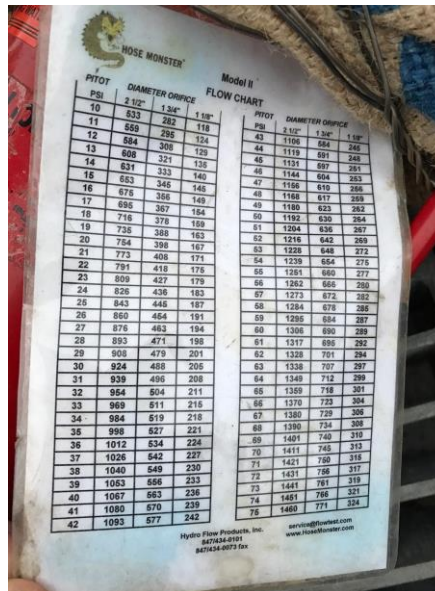 HOSE MONSTER
Model II
FLOW CHART
PITOT DIAMETER ORIFICE
PSI 2 1/2" 1 3/4" 1 1/8"
10 533 282 118
11 559 295 124
12 584 308 129
13 608 321 135
14 631 333 140
15 653 345 145
16 675 356 149
17 695 367 154
18 716 378 159
19 735 388 163
20 754 398 167
21 773 408 171
22 791 418 175
23 809 427 179
24 826 436 183
25 843 445 187
26 860 454 191
27 876 463 194
28 893 471 198
29 908 479 201
30 924 488 205
31 939 496 208
32 954 504 211
33 969 511 215
34 984 519 218
35 998 527 221
36 1012 534 224
37 1026 542 227
38 1040 549 230
39 1053 556 233
40 1067 563 236
41 1080 570 239
42 1093 577 242
PITOT DIAMETER ORIFICE
PSI 2 1/2" 1 3/4" 1 1/8"
43 1106 584 245
44 1119 591 248
45 1131 597 251
46 1144 604 253
47 1156 610 256
48 1168 617 259
49 1180 623 262
50 1192 630 264
51 1204 636 267
52 1216 642 269
53 1228 648 272
54 1239 654 275
55 1251 660 277
56 1262 666 280
57 1273 672 282
58 1284 678 285
59 1295 684 287
60 1306 690 289
61 1317 695 292
62 1328 701 294
63 1338 707 297
64 1349 712 299
65 1359 718 301
66 1370 723 304
67 1380 729 306
68 1390 734 308
69 1401 740 310
70 1411 745 313
71 1421 750 315
72 1431 756 317
73 1441 761 319
74 1451 766 321
75 1460 771 324
Hydro Flow Products, Inc.
847/434-0101
847/434-0073 fax
service@flowtest.com
www.HoseMonster.com